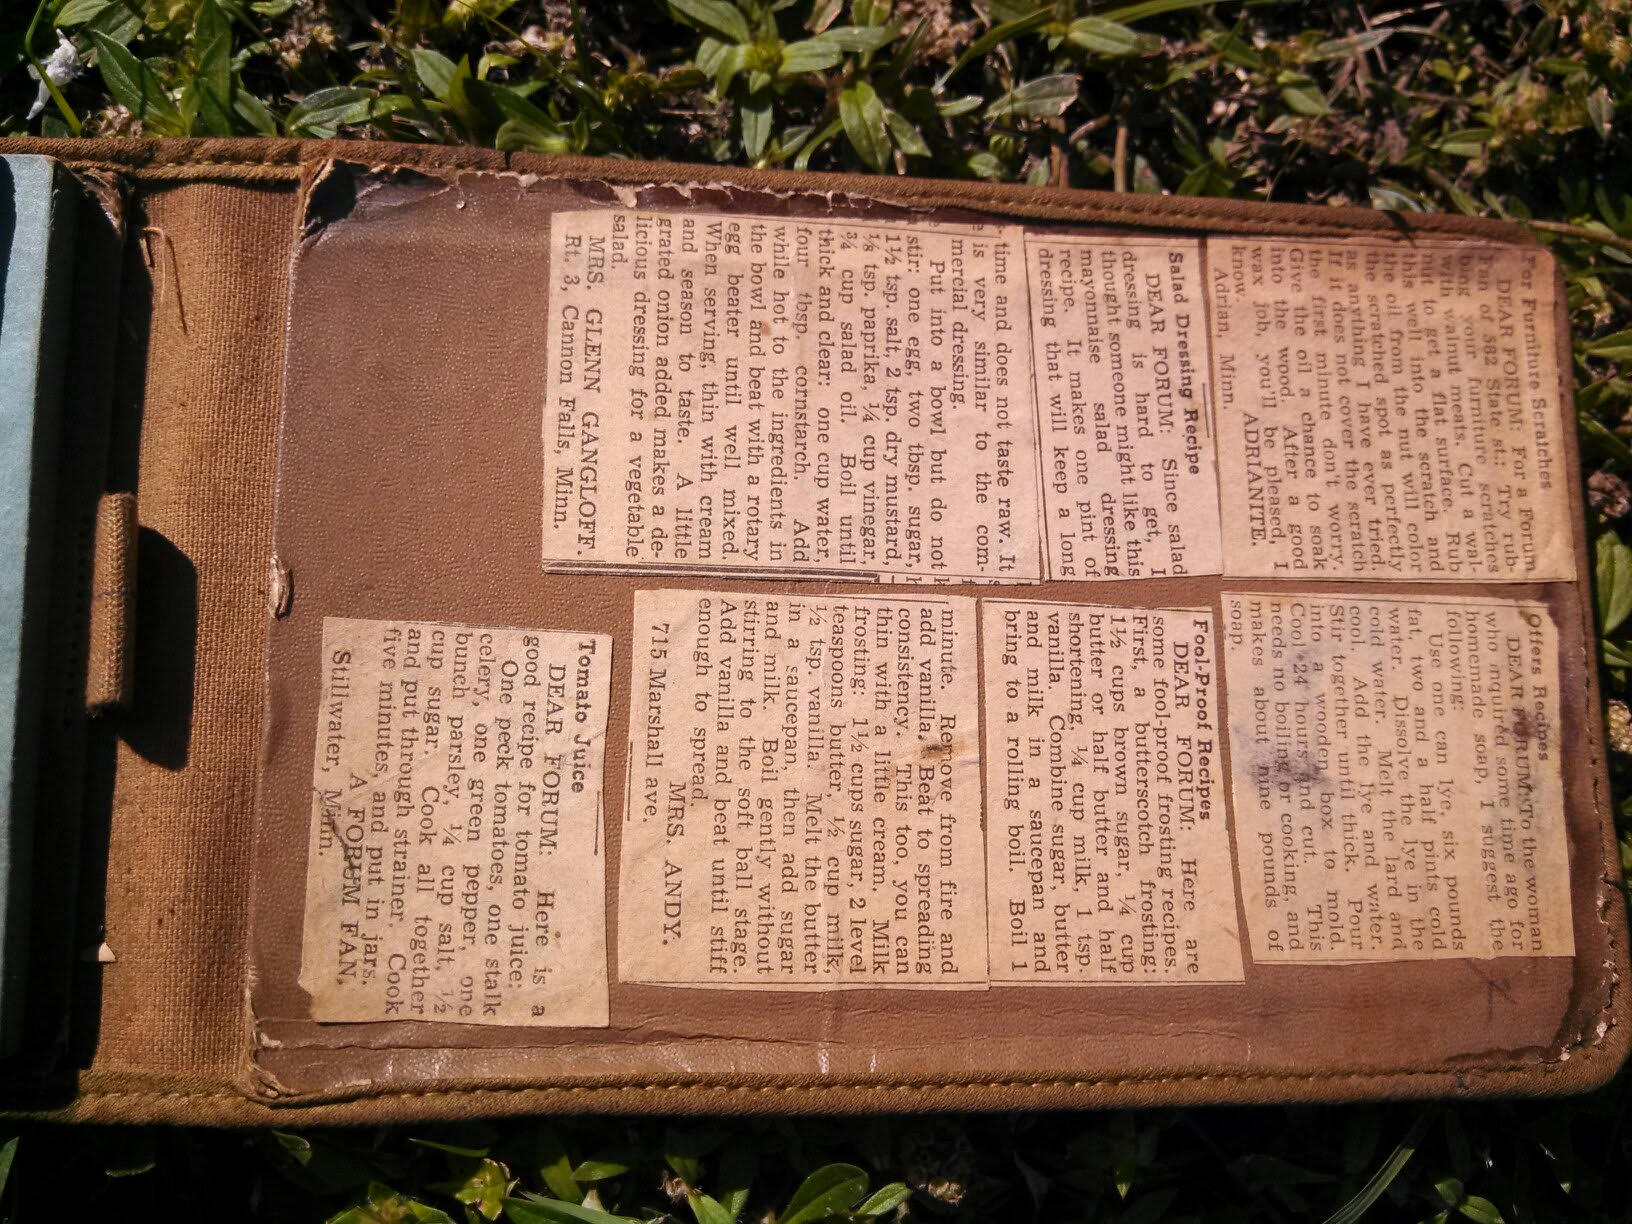 For Furniture Scratches
DEAR FORUM: For a Forum
Fan of 582 State st.: Try rub-
bing your furniture scratches
with walnut meats. Cut a wal-
nut to get a flat surface. Rub
this well into the scratch and
the oil from the nut will color
the scratched spot as perfectly
as anything I have ever tried.
If it does not cover the scratch
the first minute don't worry.
Give the oil a chance to soak
into the wood. After a good
wax job, you'll be pleased, I
know. ADRIANITE.
Adrian, Minn.
Salad Dressing Recipe
DEAR FORUM: Since salad
dressing is hard to get, I
thought someone might like this
mayonnaise salad dressing
recipe. It makes one pint of
dressing that will keep a long
time and does not taste raw. It
is very similar to the com-
mercial dressing.
Put into a bowl but do not
stir: one egg, two tbsp. sugar,
1½ tsp. salt, 2 tsp. dry mustard,
⅛ tsp. paprika, ¼ cup vinegar,
¾ cup salad oil. Boil until
thick and clear: one cup water,
four tbsp. cornstarch. Add
while hot to the ingredients in
the bowl and beat with a rotary
egg beater until well mixed.
When serving, thin with cream
and season to taste. A little
grated onion added makes a de-
licious dressing for a vegetable
salad.
MRS. GLENN GANGLOFF.
Rt. 3, Cannon Falls, Minn.
Offers Recipes
DEAR FORUM: To the woman
who inquired some time ago for
homemade soap, I suggest the
following:
Use one can lye, six pounds
fat, two and a half pints cold
water. Dissolve the lye in the
cold water. Melt the lard and
cool. Add the lye and water.
Stir together until thick. Pour
into a wooden box to mold.
Cool 24 hours and cut. This
needs no boiling or cooking, and
makes about nine pounds of
soap.
Fool-Proof Recipes
DEAR FORUM: Here are
some fool-proof frosting recipes.
First, a butterscotch frosting:
1½ cups brown sugar, ¼ cup
butter or half butter and half
shortening, ¼ cup milk, 1 tsp.
vanilla. Combine sugar, butter
and milk in a saucepan and
bring to a rolling boil. Boil 1
minute. Remove from fire and
add vanilla. Beat to spreading
consistency. This too, you can
thin with a little cream. Milk
frosting: 1½ cups sugar, 2 level
teaspoons butter, ½ cup milk,
½ tsp. vanilla. Melt the butter
in a saucepan, then add sugar
and milk. Boil gently without
stirring to the soft ball stage.
Add vanilla and beat until stiff
enough to spread.
MRS. ANDY.
715 Marshall ave.
Tomato Juice
DEAR FORUM: Here is a
good recipe for tomato juice:
One peck tomatoes, one stalk
celery, one green pepper, one
bunch parsley, ¼ cup salt, ½
cup sugar. Cook all together
and put through strainer. Cook
five minutes, and put in jars.
A FORUM FAN.
Stillwater, Minn.